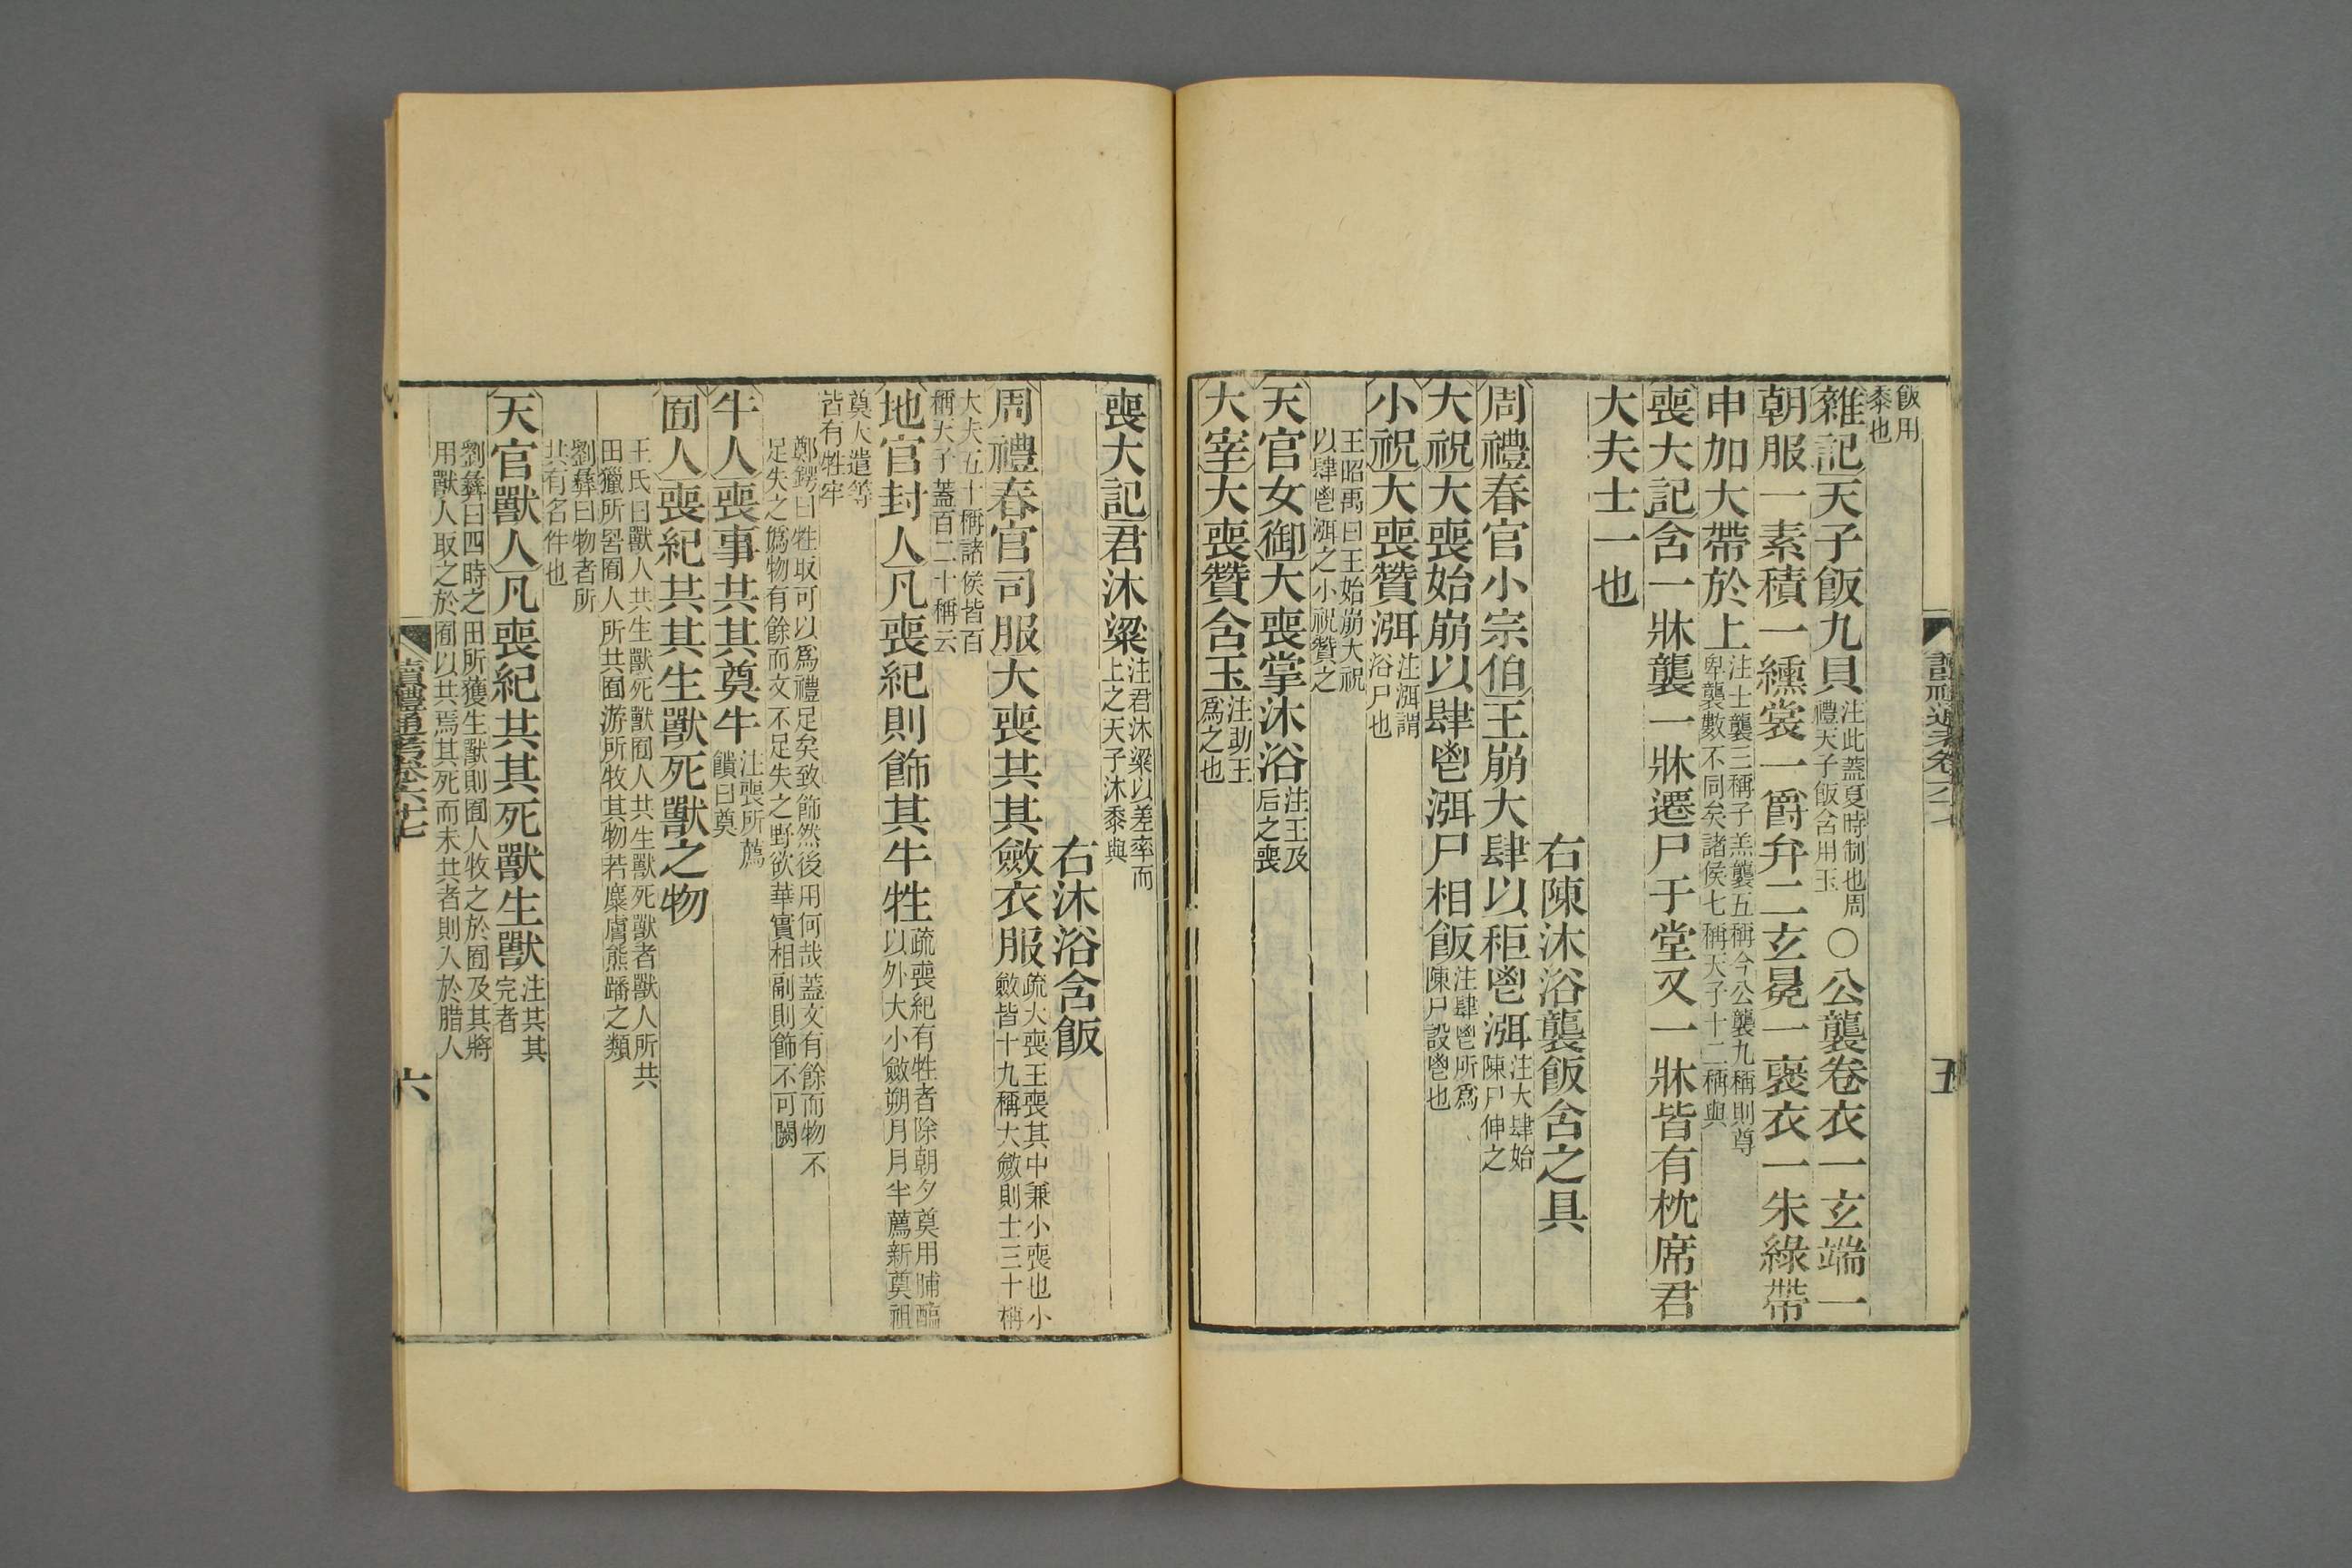 飯用黍也
雜記天子飯九貝注此蓋夏時制也周禮天子飯含用玉○公襲卷衣一玄端一
朝服一素積一纁裳一爵弁二玄冕一褒衣一朱綠帶
申加大帶於上注士襲三稱子羔襲五稱今公襲九稱則尊卑襲數不同矣諸侯七稱天子十二稱與
喪大記含一牀襲一牀遷尸于堂又一牀皆有枕席君
大夫士一也
右陳沐浴襲飯含之具
周禮春官小宗伯王崩大肆以秬鬯渳注大肆始陳尸伸之
大祝大喪始崩以肆鬯渳尸相飯注肆鬯所爲陳尸設鬯也
小祝大喪贊渳注渳謂浴尸也
王昭禹曰王始崩大祝以肆鬯渳之小祝贊之
天官女御大喪掌沐浴注王及后之喪
大宰大喪贊含玉注助王爲之也
讀禮通考卷六十七
五
喪大記君沐粱注君沐粱以差率而上之天子沐黍與
右沐浴含飯
周禮春官司服大喪共其斂衣服疏大喪王喪其中兼小喪也小斂皆十九稱大斂則士三十稱
大夫五十稱諸侯皆百稱天子蓋百二十稱云
地官封人凡喪紀則飾其牛牲疏喪紀有牲者除朝夕奠用脯醢以外大小斂朔月月半薦新奠祖
奠大遣等皆有牲牢
鄭鍔曰牲取可以爲禮足矣致飾然後用何哉蓋文有餘而物不足失之僞物有餘而文不足失之野欲華實相副則飾不可闕
牛人喪事共其奠牛注喪所薦饋曰奠
囿人喪紀共其生獸死獸之物
王氏曰獸人共生獸死獸囿人共生獸死獸者獸人所共田獵所罟囿人所共囿游所牧其物若麋膚熊蹯之類
劉彝曰物者所共有名件也
天官獸人凡喪紀共其死獸生獸注共其完者
劉彝曰四時之田所獲生獸則囿人牧之於囿及其將用獸人取之於囿以共焉其死而未共者則入於腊人
讀禮通考卷六十七
六